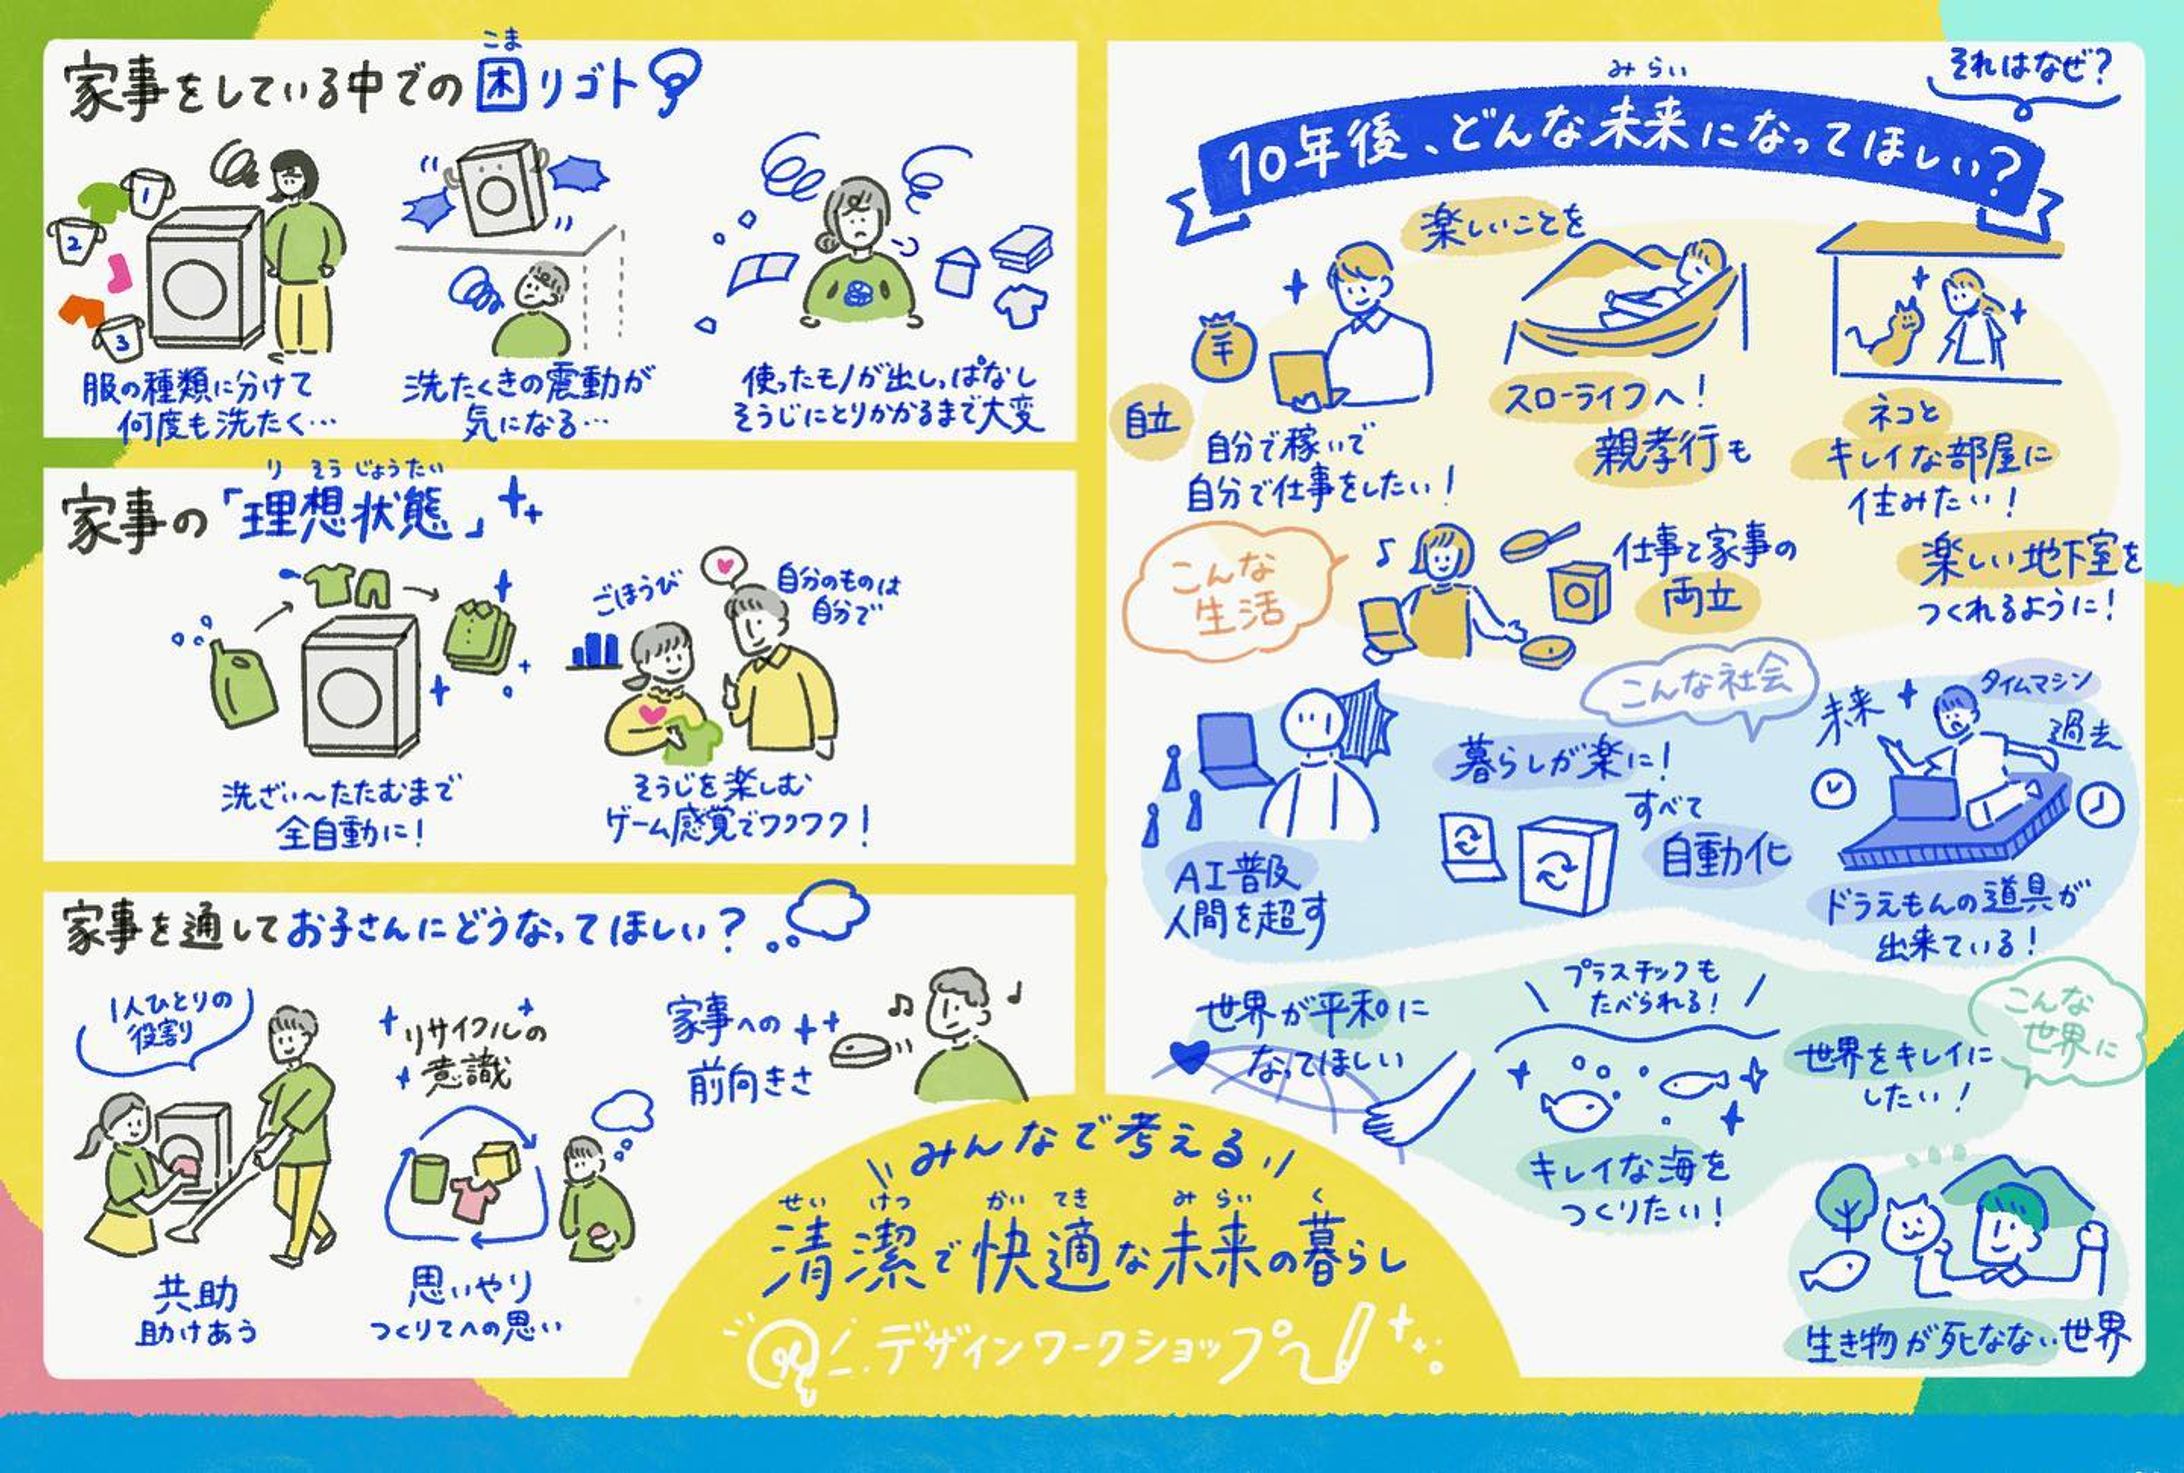 家事をしている中での困リゴト?
こま
1
2
3
服の種類に分けて
何度も洗たく…
洗たくきの震動が
気になる…
使ったモノが出しっぱなし
そうじにとりかかるまで大変
家事の「理想状態」
り そう じょうたい
洗ざい〜たたむまで
全自動に!
ごほうび
自分のものは
自分で
そうじを楽しむ
ゲーム感覚でワクワク!
家事を通してお子さんにどうなってほしい?
1人ひとりの
役割
共助
助けあう
リサイクルの
意識
思いやり
つくりてへの思い
家事への
前向きさ
それはなぜ?
みらい
10年後、どんな未来になってほしい?
楽しいことを
自立
自分で稼いで
自分で仕事をしたい!
スローライフへ!
親孝行も
ネコと
キレイな部屋に
住みたい!
こんな
生活
仕事と家事の
両立
楽しい地下室を
つくれるように!
こんな社会
AI普及
人間を超す
暮らしが楽に!
すべて
自動化
未来
タイムマシン
過去
ドラえもんの道具が
出来ている!
こんな
世界に
世界が平和に
なってほしい
プラスチックも
たべられる!
キレイな海を
つくりたい!
世界をキレイに
したい!
生き物が死なない世界
みんなで考える
せい けつ かい てき み らい く
清潔で快適な未来の暮らし
デザインワークショップ